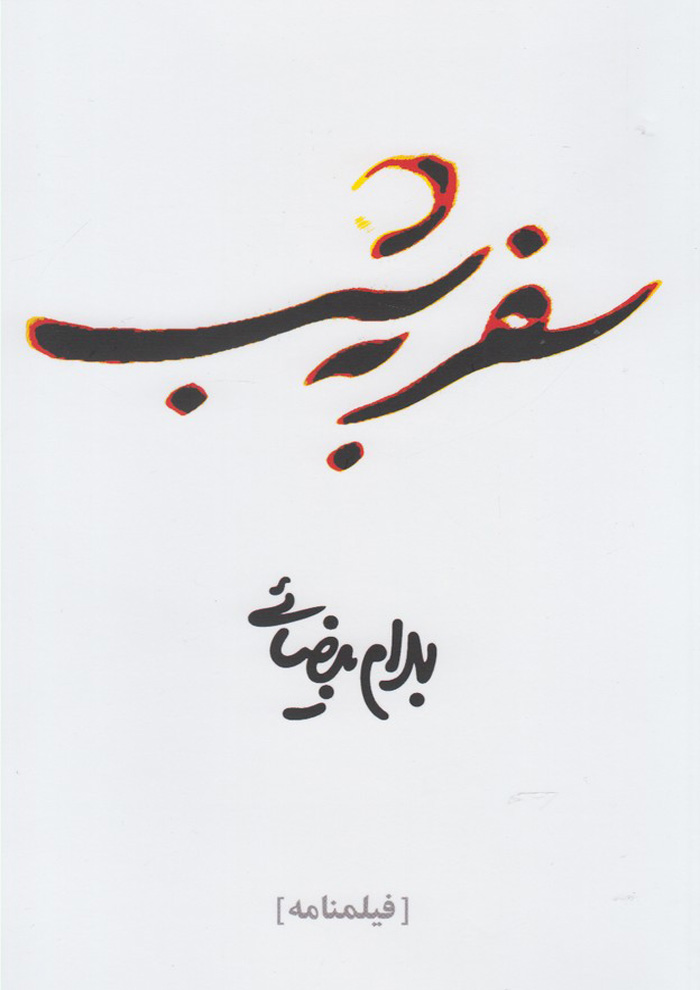 سفر بشب
بهرام بیضائی
[فیلمنامه]